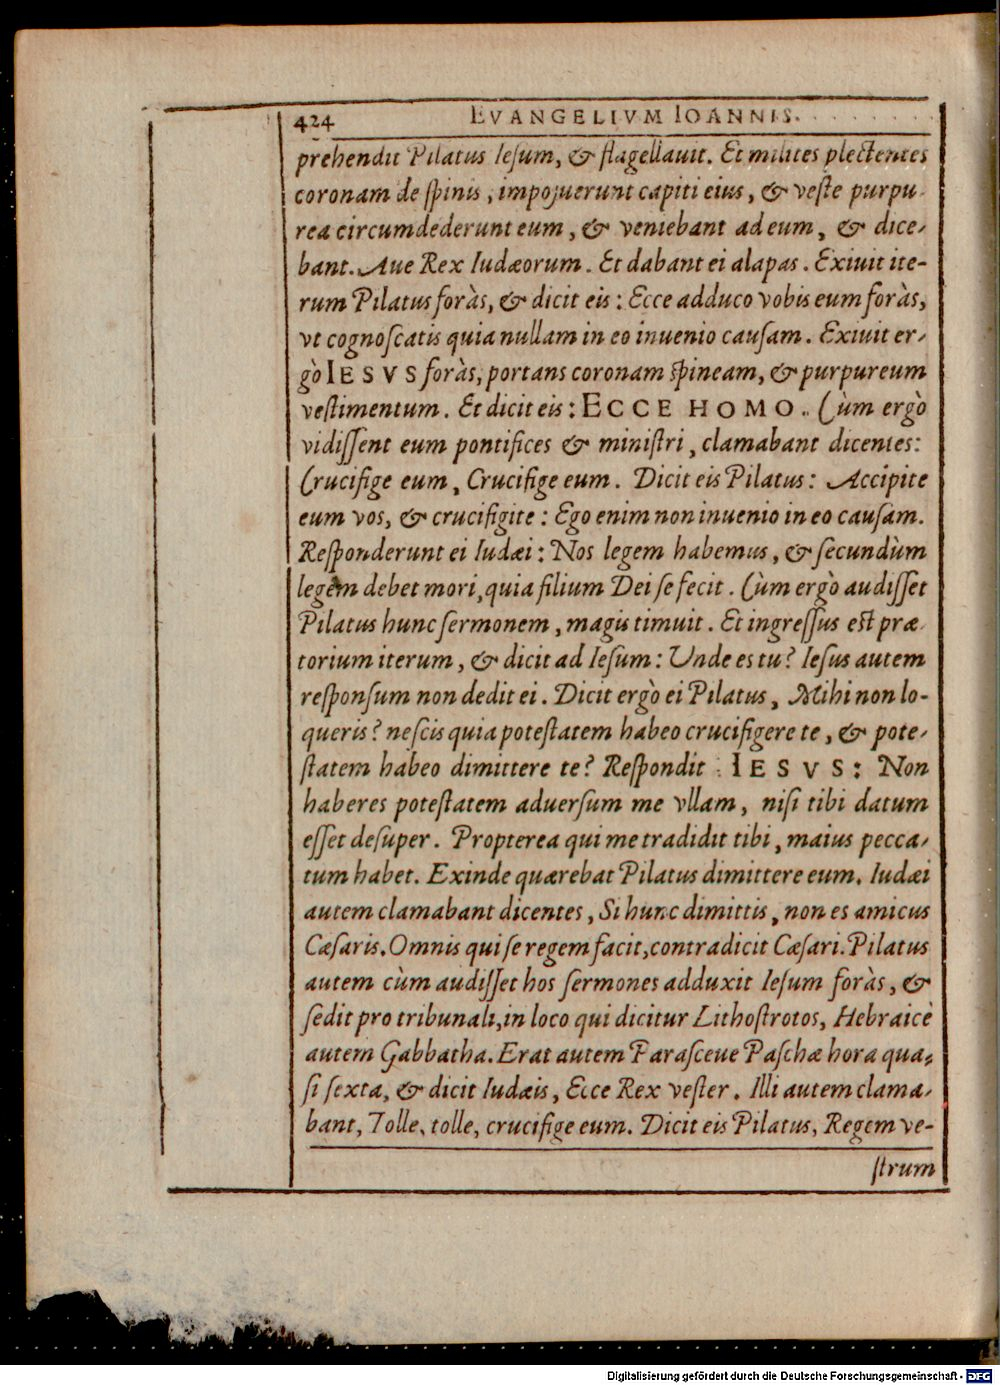 424 EVANGELIVM IOANNIS.
prehendit Pilatus Iesum, & flagellauit. Et milites plectentes
coronam de spinis, imposuerunt capiti eius, & veste purpu-
rea circumdederunt eum, & veniebant ad eum, & dice-
bant. Aue Rex Iudæorum. Et dabant ei alapas. Exiuit ite-
rum Pilatus foràs, & dicit eis: Ecce adduco vobis eum foràs,
vt cognoscatis quia nullam in eo inuenio causam. Exiuit er-
gò IESVS foràs, portans coronam spineam, & purpureum
vestimentum. Et dicit eis: ECCE HOMO. Cùm ergò
vidissent eum pontifices & ministri, clamabant dicentes:
Crucifige eum, Crucifige eum. Dicit eis Pilatus: Accipite
eum vos, & crucifigite: Ego enim non inuenio in eo causam.
Responderunt ei Iudæi: Nos legem habemus, & secundùm
legem debet mori, quia filium Dei se fecit. Cùm ergò audisset
Pilatus hunc sermonem, magis timuit. Et ingressus est præ-
torium iterum, & dicit ad Iesum: Unde es tu? Iesus autem
responsum non dedit ei. Dicit ergò ei Pilatus, Mihi non lo-
queris? nescis quia potestatem habeo crucifigere te, & pote-
statem habeo dimittere te? Respondit IESVS: Non
haberes potestatem aduersum me vllam, nisi tibi datum
esset desuper. Propterea qui me tradidit tibi, maius pecca-
tum habet. Exinde quærebat Pilatus dimittere eum. Iudæi
autem clamabant dicentes, Si hunc dimittis, non es amicus
Cæsaris. Omnis qui se regem facit, contradicit Cæsari. Pilatus
autem cùm audisset hos sermones adduxit Iesum foràs, &
sedit pro tribunali, in loco qui dicitur Lithostrotos, Hebraicè
autem Gabbatha. Erat autem Parasceue Paschæ hora qua-
si sexta, & dicit Iudæis, Ecce Rex vester. Illi autem clama-
bant, Tolle, tolle, crucifige eum. Dicit eis Pilatus, Regem ve-
strum
Digitalisierung gefördert durch die Deutsche Forschungsgemeinschaft - DFG